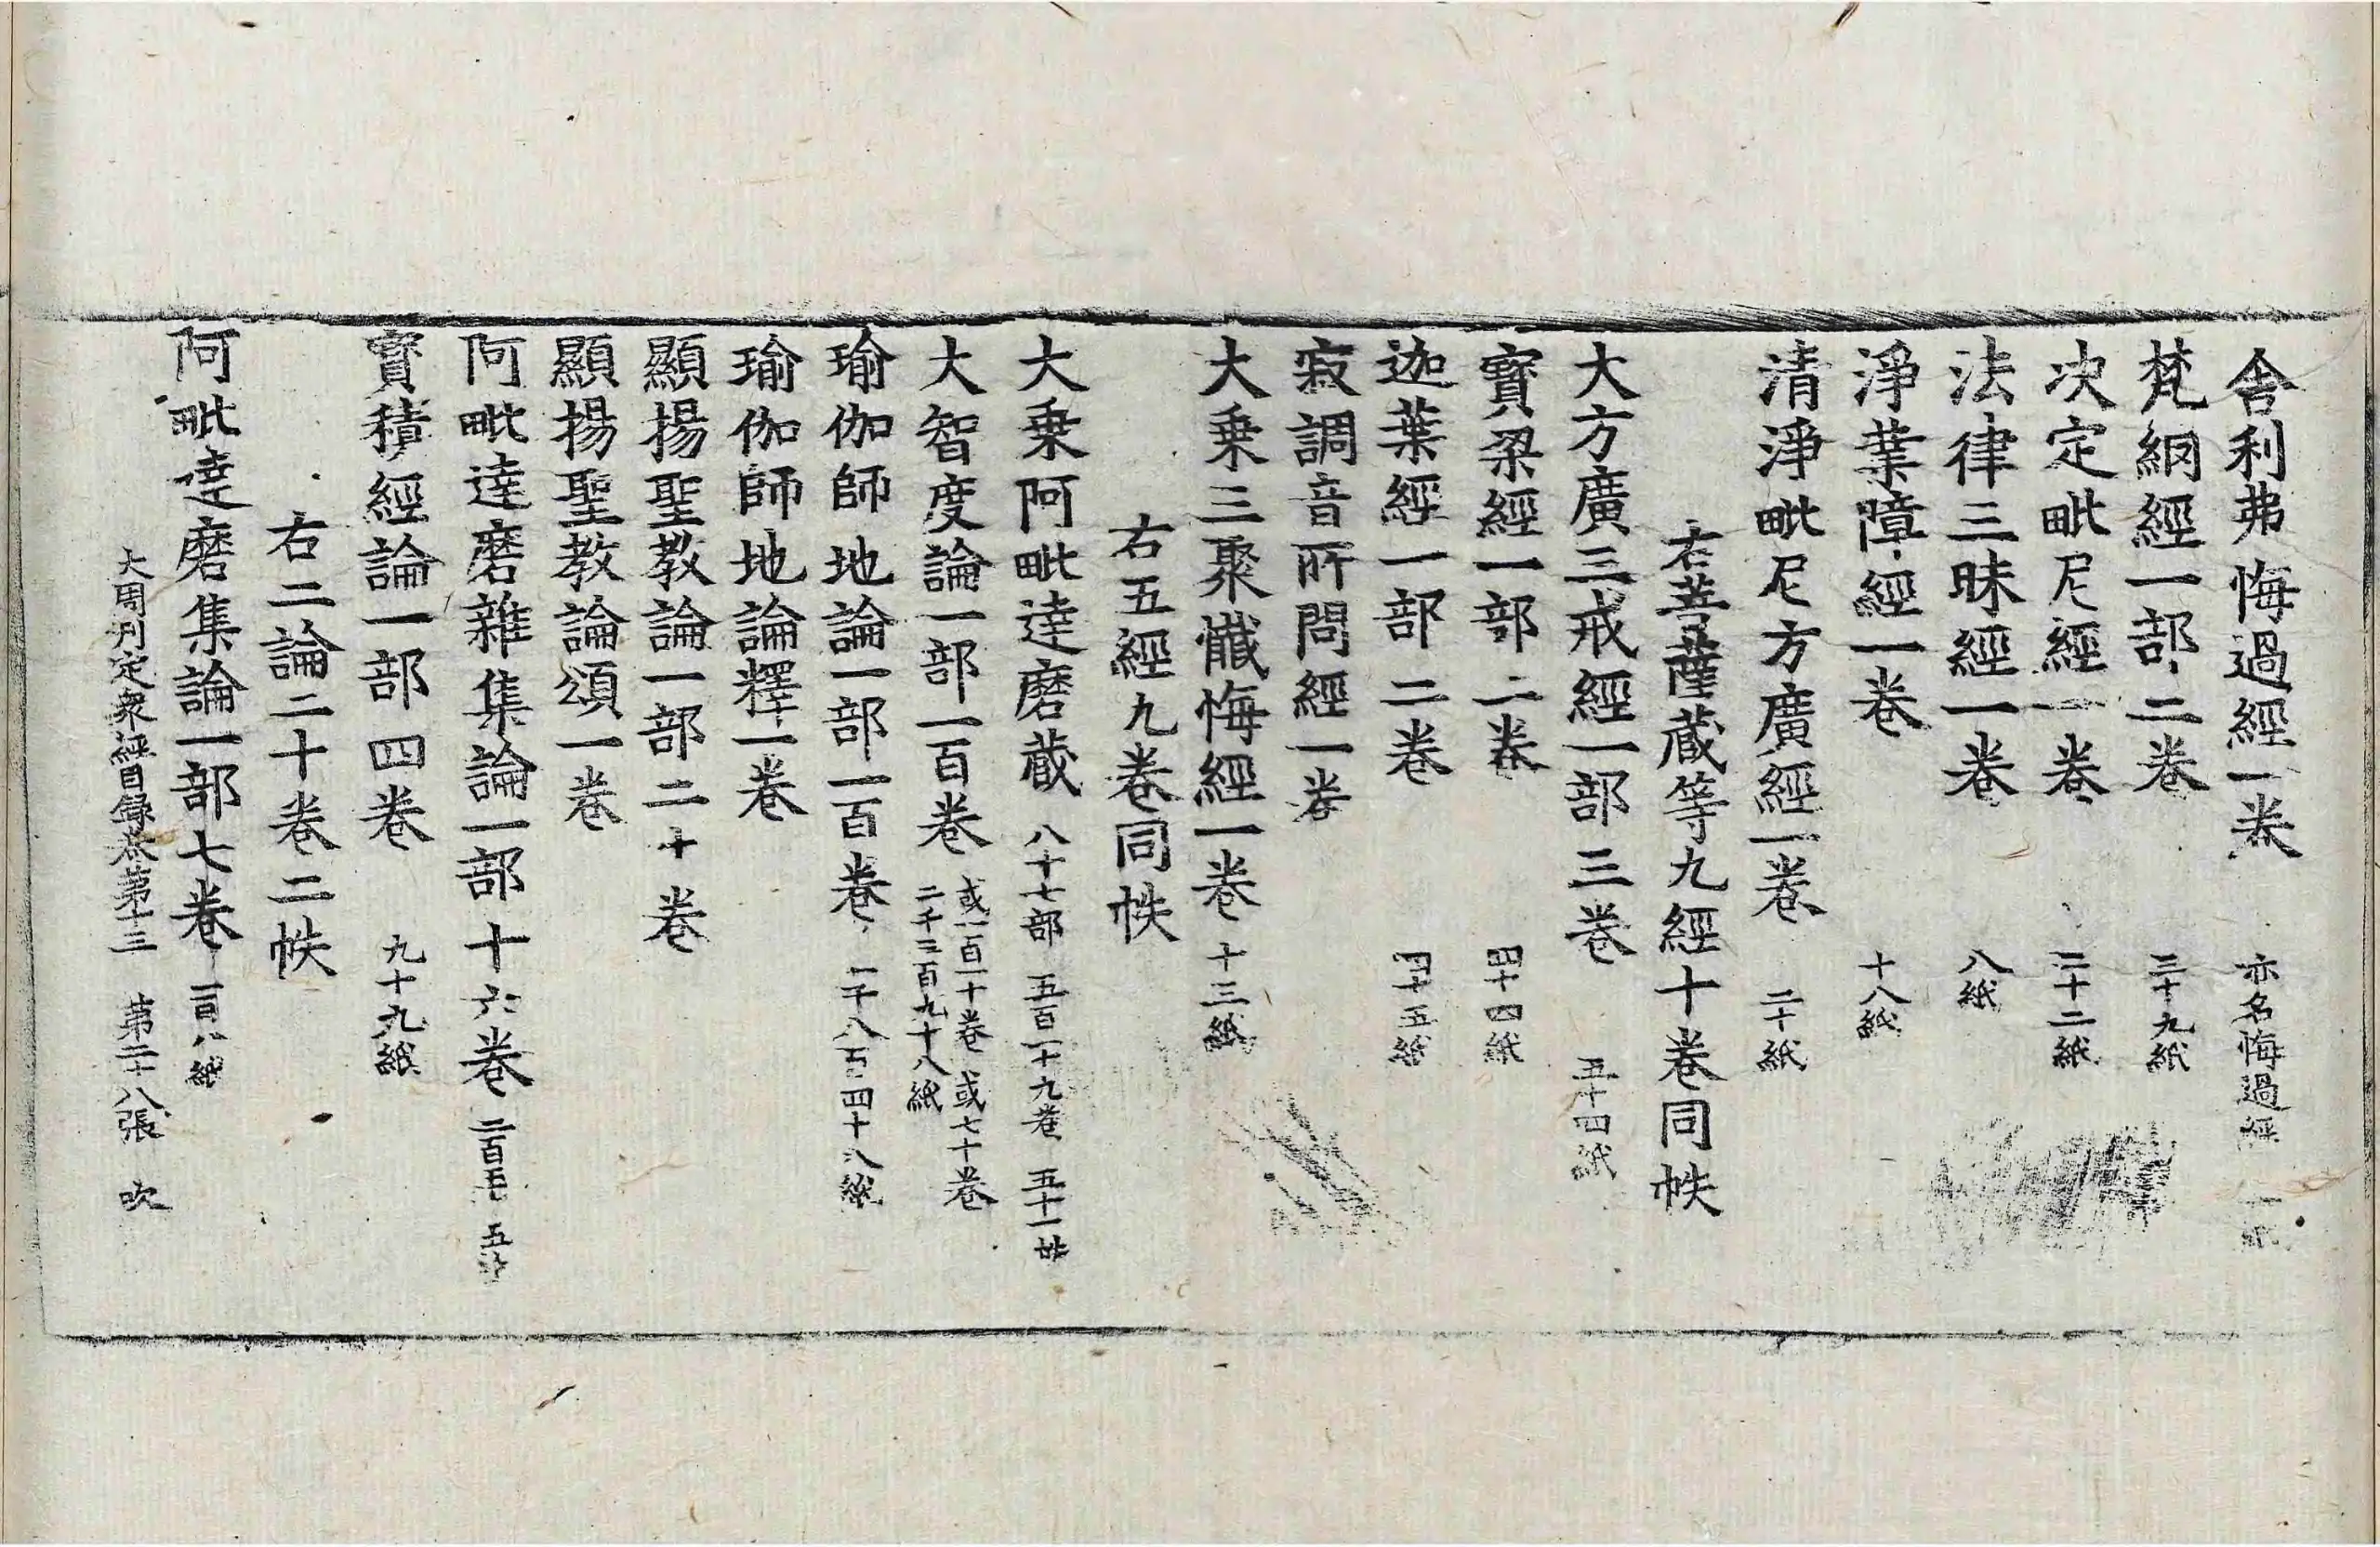 舍利弗悔過經一卷 亦名悔過經
梵網經一部二卷 三十九紙
决定毗尼經一卷 二十二紙
法律三昧經一卷 八紙
淨業障經一卷 十八紙
清淨毗尼方廣經一卷 二十紙
右菩薩藏等九經十卷同帙
大方廣三戒經一部三卷 五十四紙
寶梁經一部二卷 四十四紙
迦葉經一部二卷 四十五紙
寂調音所問經一卷
大乗三聚懺悔經一卷 十三紙
右五經九卷同帙
大乗阿毗達磨藏 八十七部 五百一十九卷 五十一帙
大智度論一部一百卷 或一百一十卷 或七十卷
二千三百九十八紙
瑜伽師地論一部一百卷 一千八百四十八紙
瑜伽師地論釋一卷
顯揚聖教論一部二十卷
顯揚聖教論頌一卷
阿毗達磨雜集論一部十六卷 二百五
寶積經論一部四卷 九十九紙
右二論二十卷二帙
阿毗達磨集論一部七卷 一百八紙
大周刋定衆經目録卷第十三 第二十八張 吹